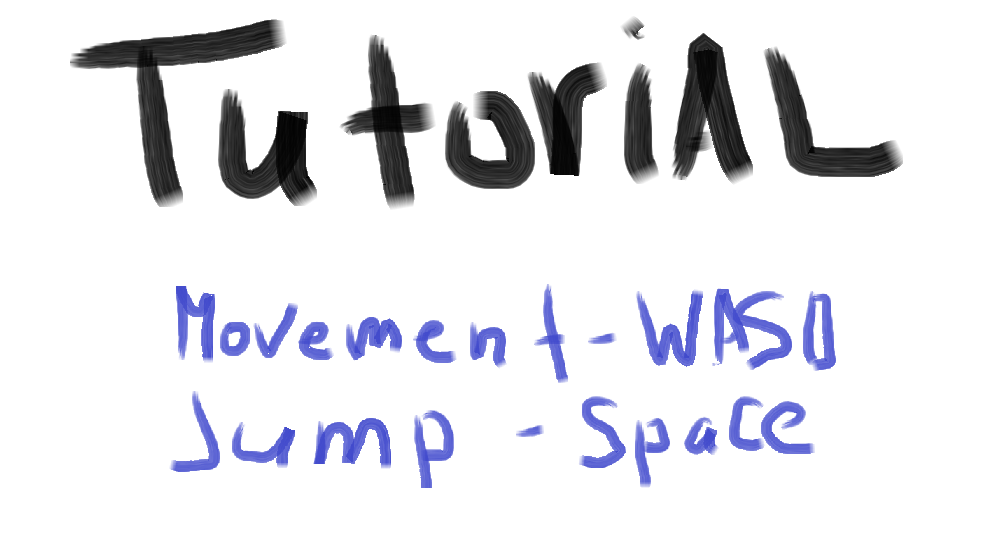 TutoriAL
Movement - WASD
Jump - Space